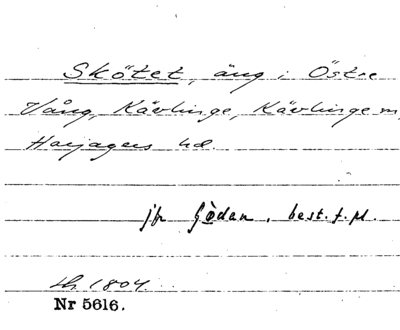 Skötet, äng i Östre
Vång, Kävlinge, Kävlinge sn,
Harjagers hd.
jfr Gödan, best. f. pl.
1804.
Nr 5616.